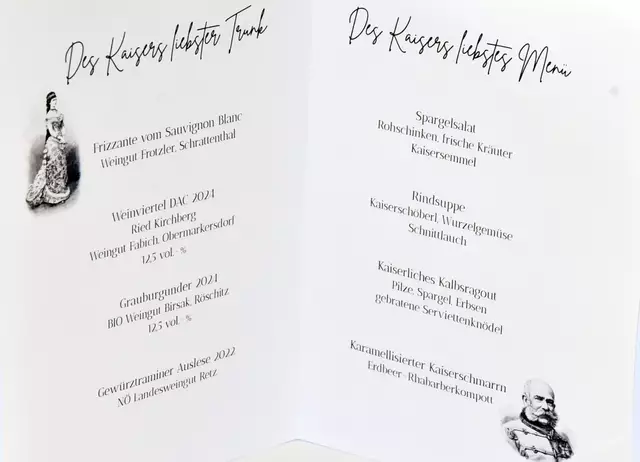 Des Kaisers liebster Trunk
Frizzante vom Sauvignon Blanc
Weingut Frotzler, Schrattenthal
Weinviertel DAC 2024
Ried Kirchberg
Weingut Fabich, Obermarkersdorf
12,5 vol.-%
Grauburgunder 2024
BIO Weingut Birsak, Röschitz
12,5 vol.-%
Gewürztraminer Auslese 2022
NÖ Landesweingut Retz
Des Kaisers liebstes Menü
Spargelsalat
Rohschinken, frische Kräuter
Kaisersemmel
Rindsuppe
Kaiserschöberl, Wurzelgemüse
Schnittlauch
Kaiserliches Kalbsragout
Pilze, Spargel, Erbsen
gebratene Serviettenknödel
Karamellisierter Kaiserschmarrn
Erdbeer-Rhabarberkompott